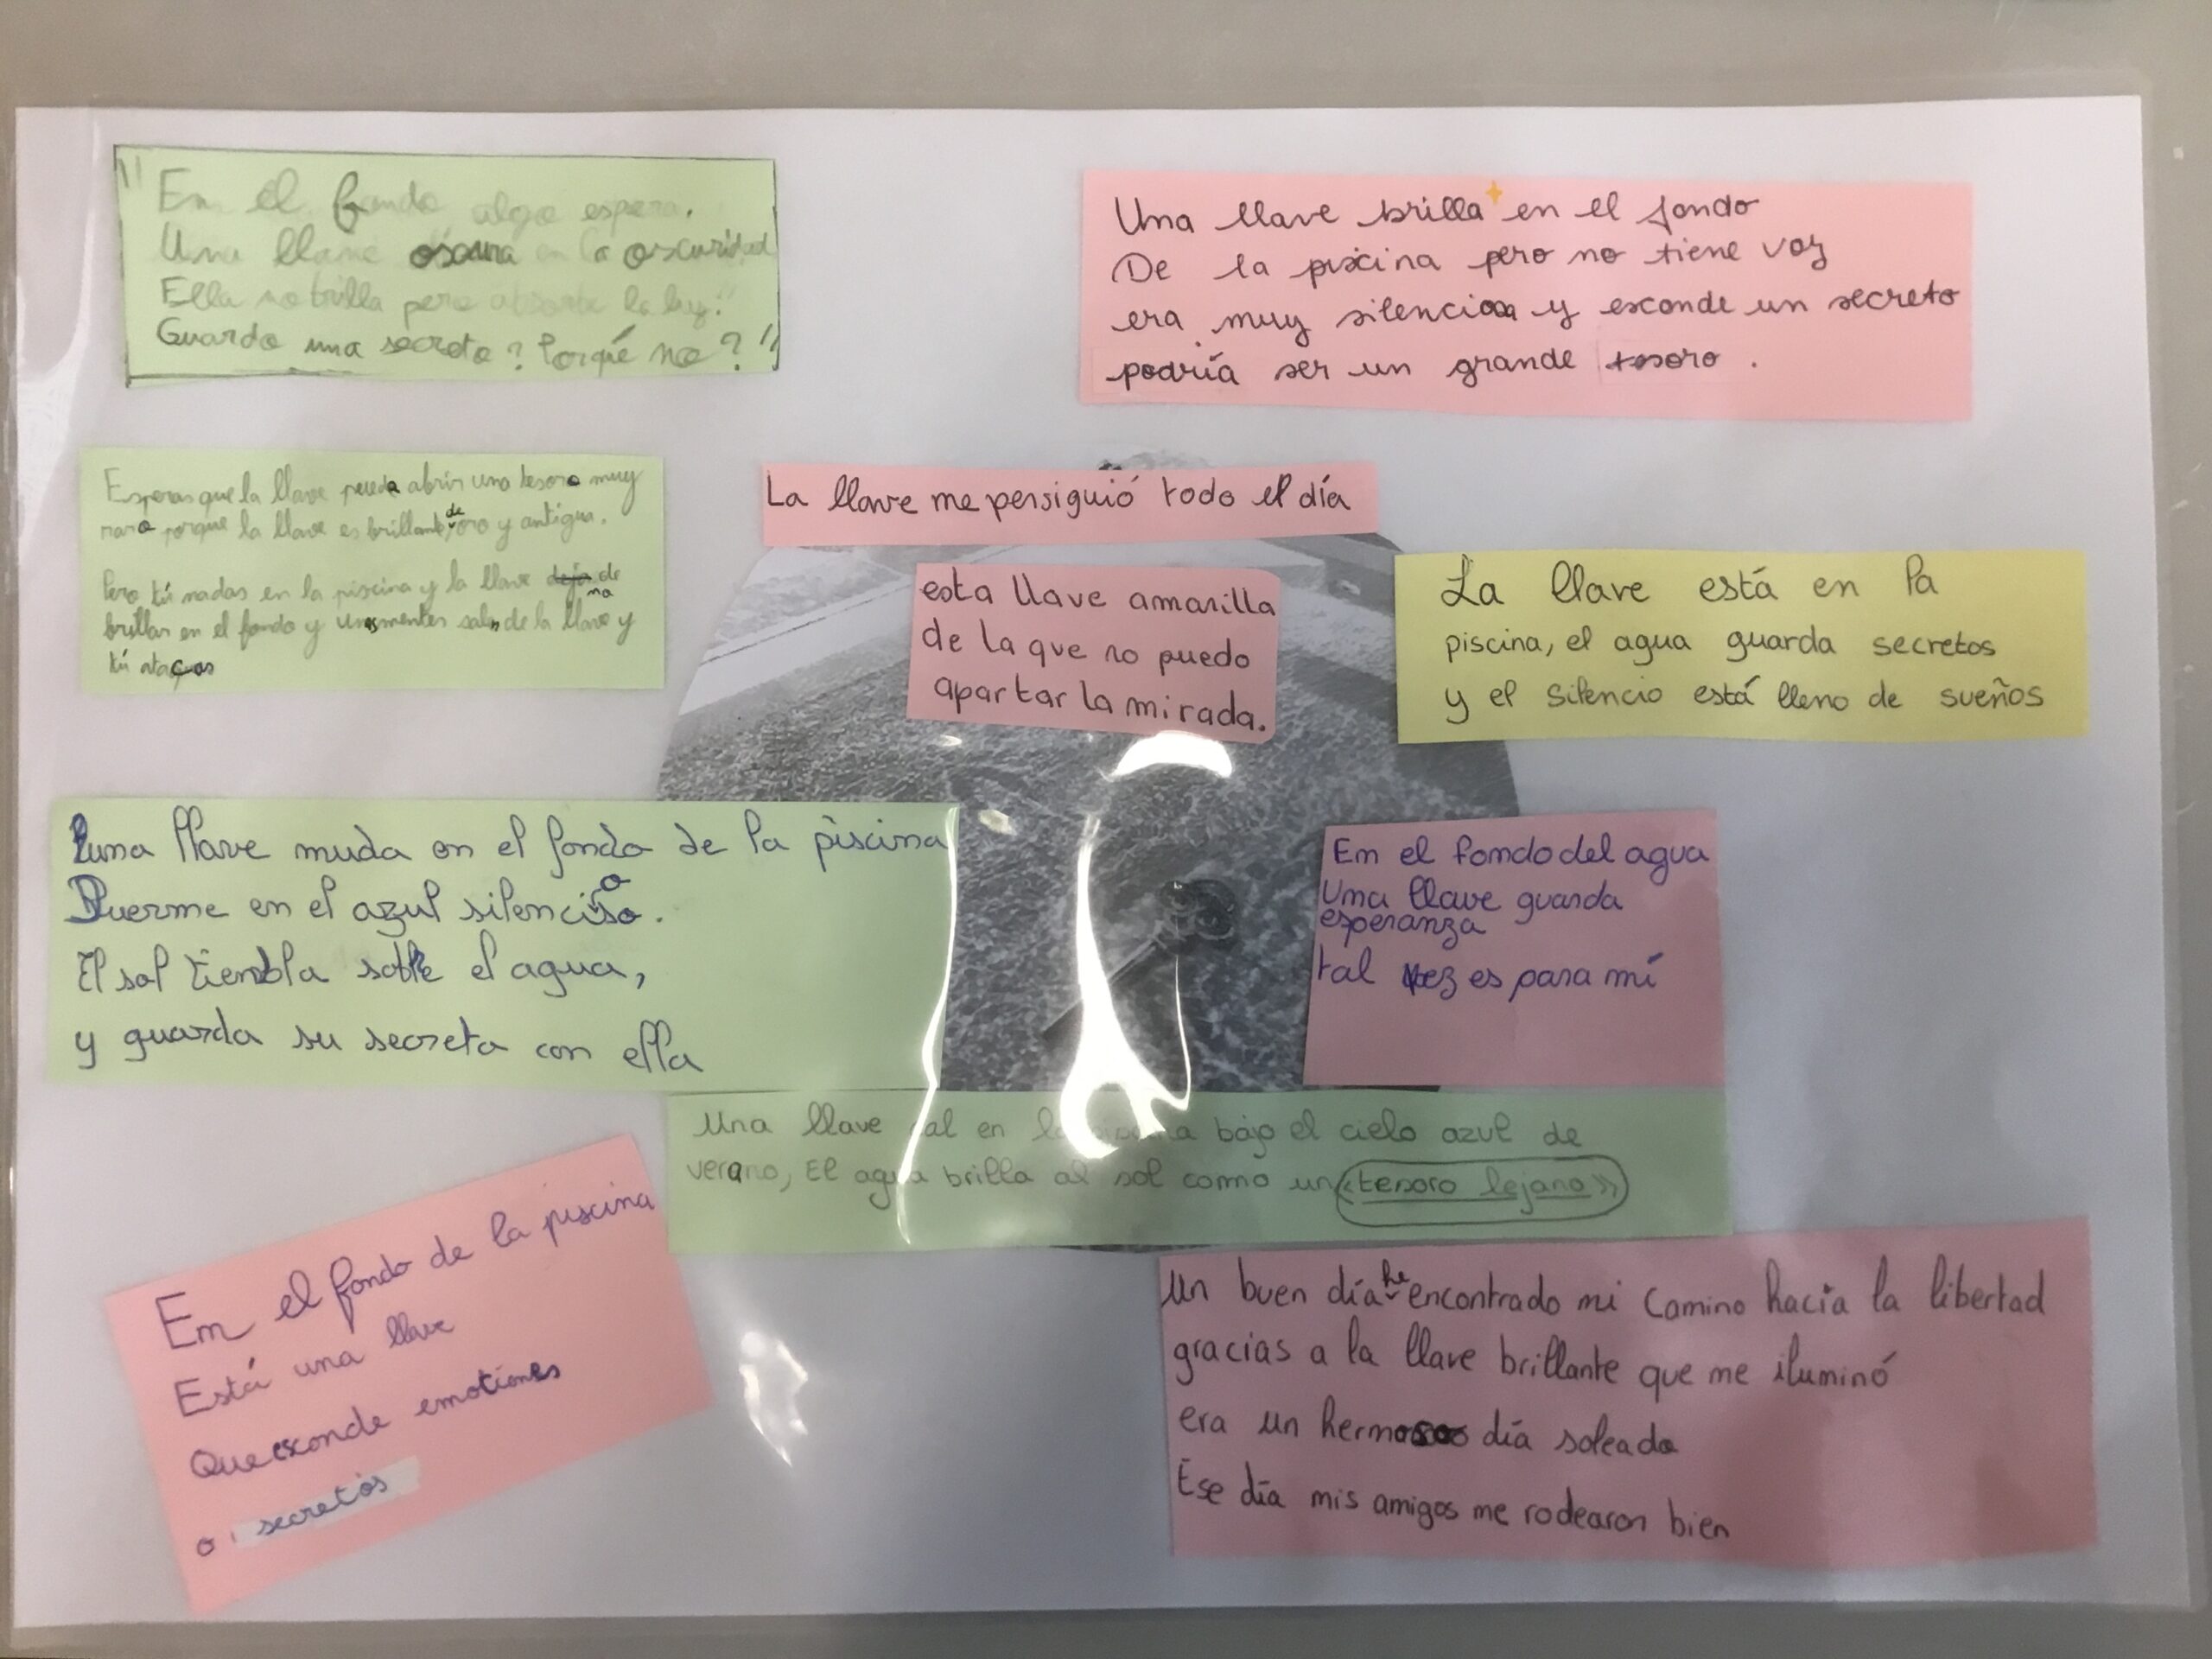 "En el fondo algo espera.
Una llave oscura en la oscuridad
Ella no brilla pero absorbe la luz.
Guarda una secreto? Porqué no?"
Una llave brilla en el fondo
De la piscina pero no tiene voz
era muy silenciosa y esconde un secreto
podría ser un grande tesoro.
Esperas que la llave pueda abrir una tesoro muy
raro porque la llave es brillante, de oro y antígua.
Pero tú nadas en la piscina y la llave de
brillar en el fondo y salen de la llave y
tú
La llave me persiguió todo el día
esta llave amarilla
de la que no puedo
apartar la mirada.
La llave está en la
piscina, el agua guarda secretos
y el silencio está lleno de sueños
una llave muda en el fondo de la piscina
Duerme en el azul silencioso.
El sol tiembla sobre el agua,
y guarda su secreto con ella
En el fondo del agua
Una llave guarda
esperanza
tal vez es para mí
Una llave en bajo el cielo azul de
verano, El agua brilla al sol como un «tesoro lejano»
En el fondo de la piscina
Está una llave
Que esconde emotiones
o secretos
Un buen día he encontrado mi camino hacia la libertad
gracias a la llave brillante que me iluminó
era un hermoso día soleado
Ese día mis amigos me rodearon bien